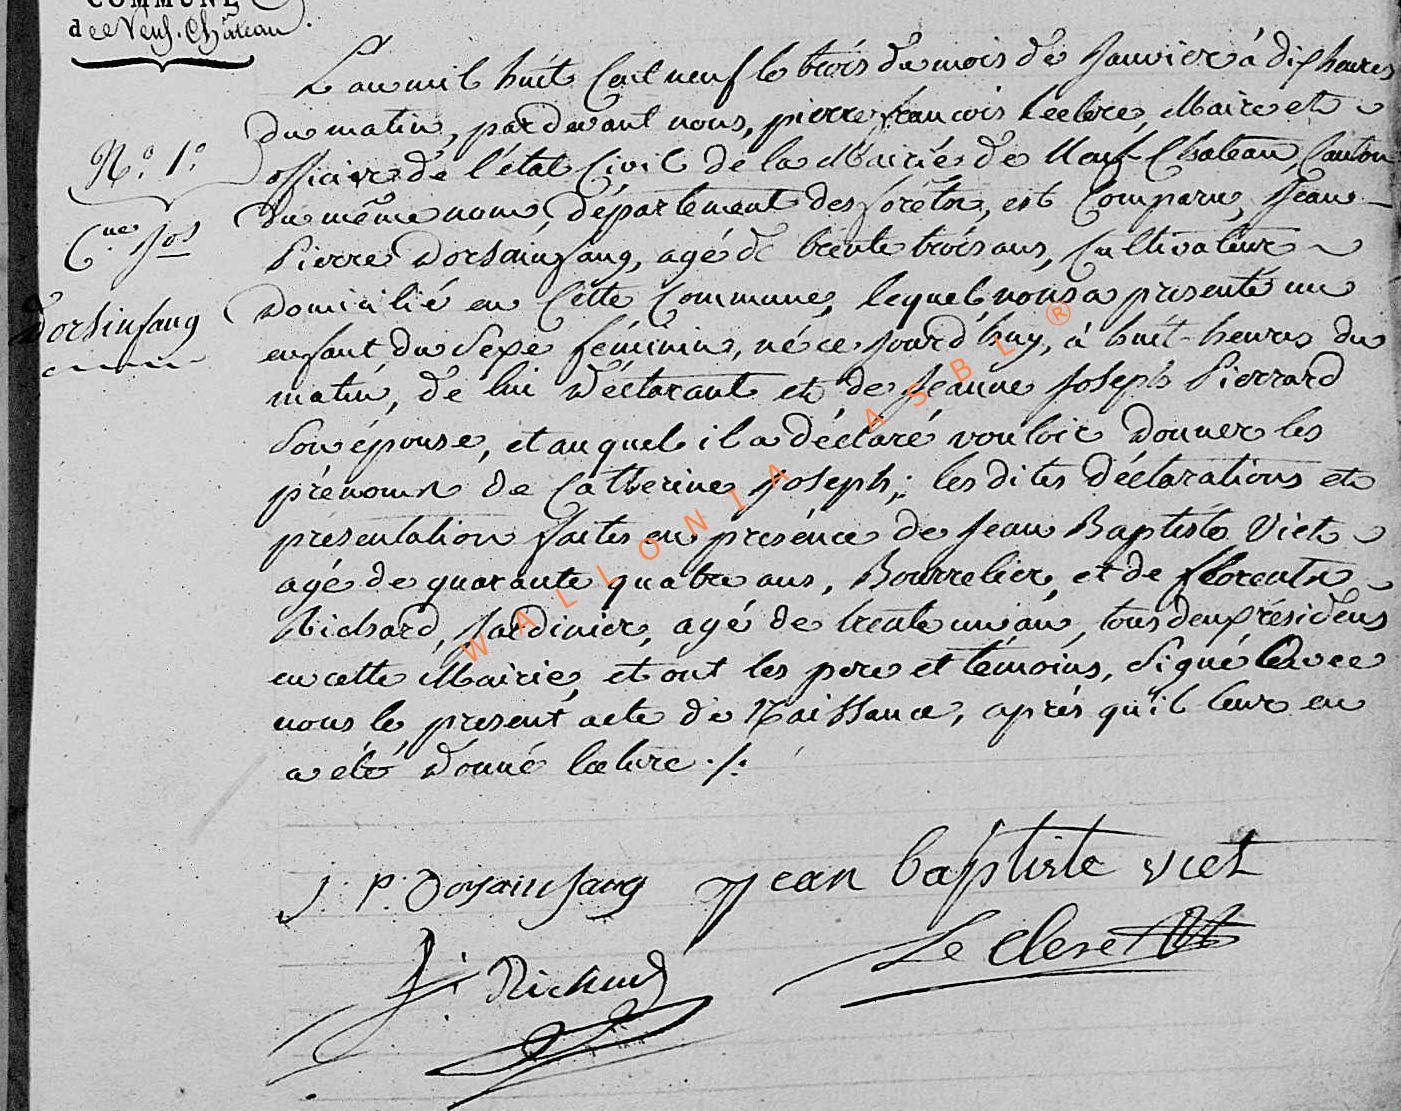 COMMUNE
de Neuf-Château
N.° 1.°
C.ne Jos
Dorsinfang
L'an mil huit Cent neuf le trois du mois de Janvier à dix heures
du matin, pardevant nous, pierre françois Leclerc, Maire et
officier de l'état Civil de la Mairie de Neuf-Chateau, Canton
du même nom, département des forêts, est Comparu, Jean
Pierre Dorsainfang, agé de trente trois ans, Cultivateur
Domicilié en Cette Commune, lequel nous a presenté un
enfant du Sexe féminin, né ce jourd'huy, à huit heures du
matin, de lui Déclarant et de Jeanne Joseph Pierrard
Son épouse, et auquel il a déclaré vouloir Donner les
prénoms de Catherine Joseph; les dites déclarations et
présentation faites en présence de Jean Baptiste Viet
agé de quarante quatre ans, Bourrelier, et de florentin
Richard, Jardinier, agé de trente un an, tous deux résidens
en cette Mairie, et ont les pere et témoins, Signé avec
nous le present acte de Naissance, après qu'il leur en
a été Donné lecture ./.
J. P. Dorsainfang
Jean baptiste viet
Le clerc
f. Richard
WALLONIA ASBL ®